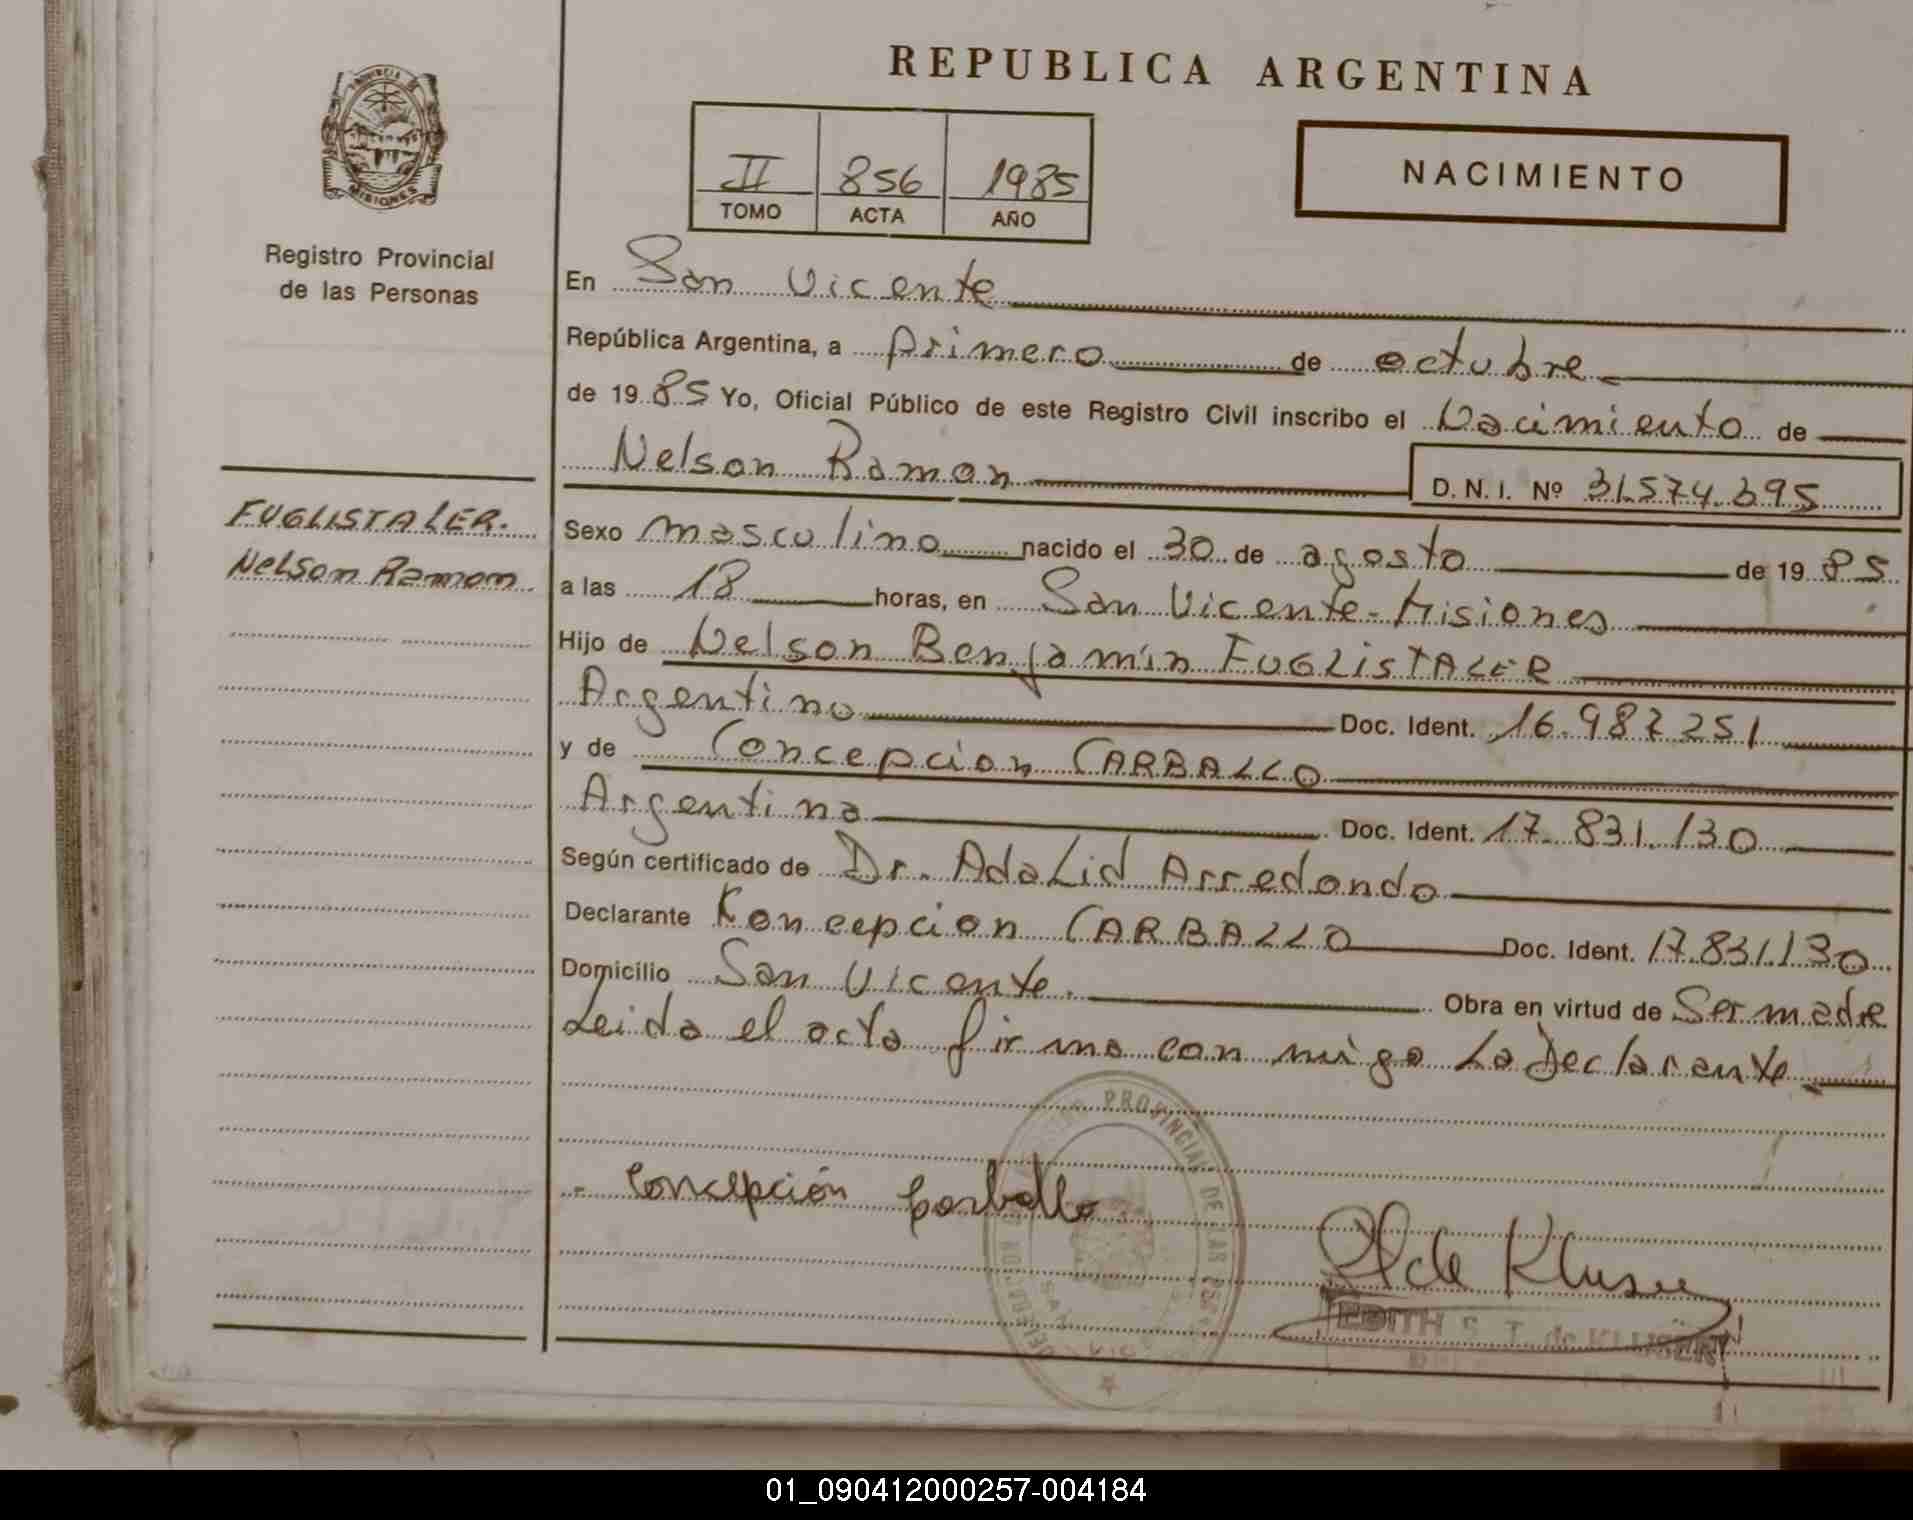 REPUBLICA ARGENTINA
PROVINCIA DE
MISIONES
Registro Provincial
de las Personas
II 856 1985
TOMO ACTA AÑO
NACIMIENTO
En San Vicente
República Argentina, a primero de octubre
de 1985 Yo, Oficial Público de este Registro Civil inscribo el Nacimiento de
Nelson Ramon D. N. I. Nº 31.574.395
FUGLISTALER.
Nelson Ramon
Sexo masculino nacido el 30 de agosto de 1985
a las 18 horas, en San Vicente - Misiones
Hijo de Nelson Benjamin FUGLISTALER
Argentino Doc. Ident. 16.987.251
y de Concepcion CARBALLO
Argentina Doc. Ident. 17.831.130
Según certificado de Dr. Adalid Arredondo
Declarante Concepcion CARBALLO Doc. Ident. 17.831.130
Domicilio San Vicente. Obra en virtud de Ser madre
Leida el acta firma con migo La Declarante
PROVINCIAL DE LAS
DELEGACION
Concepción Carballo
de Klusen
EDITH S. T. de KLUSEN
01_090412000257-004184